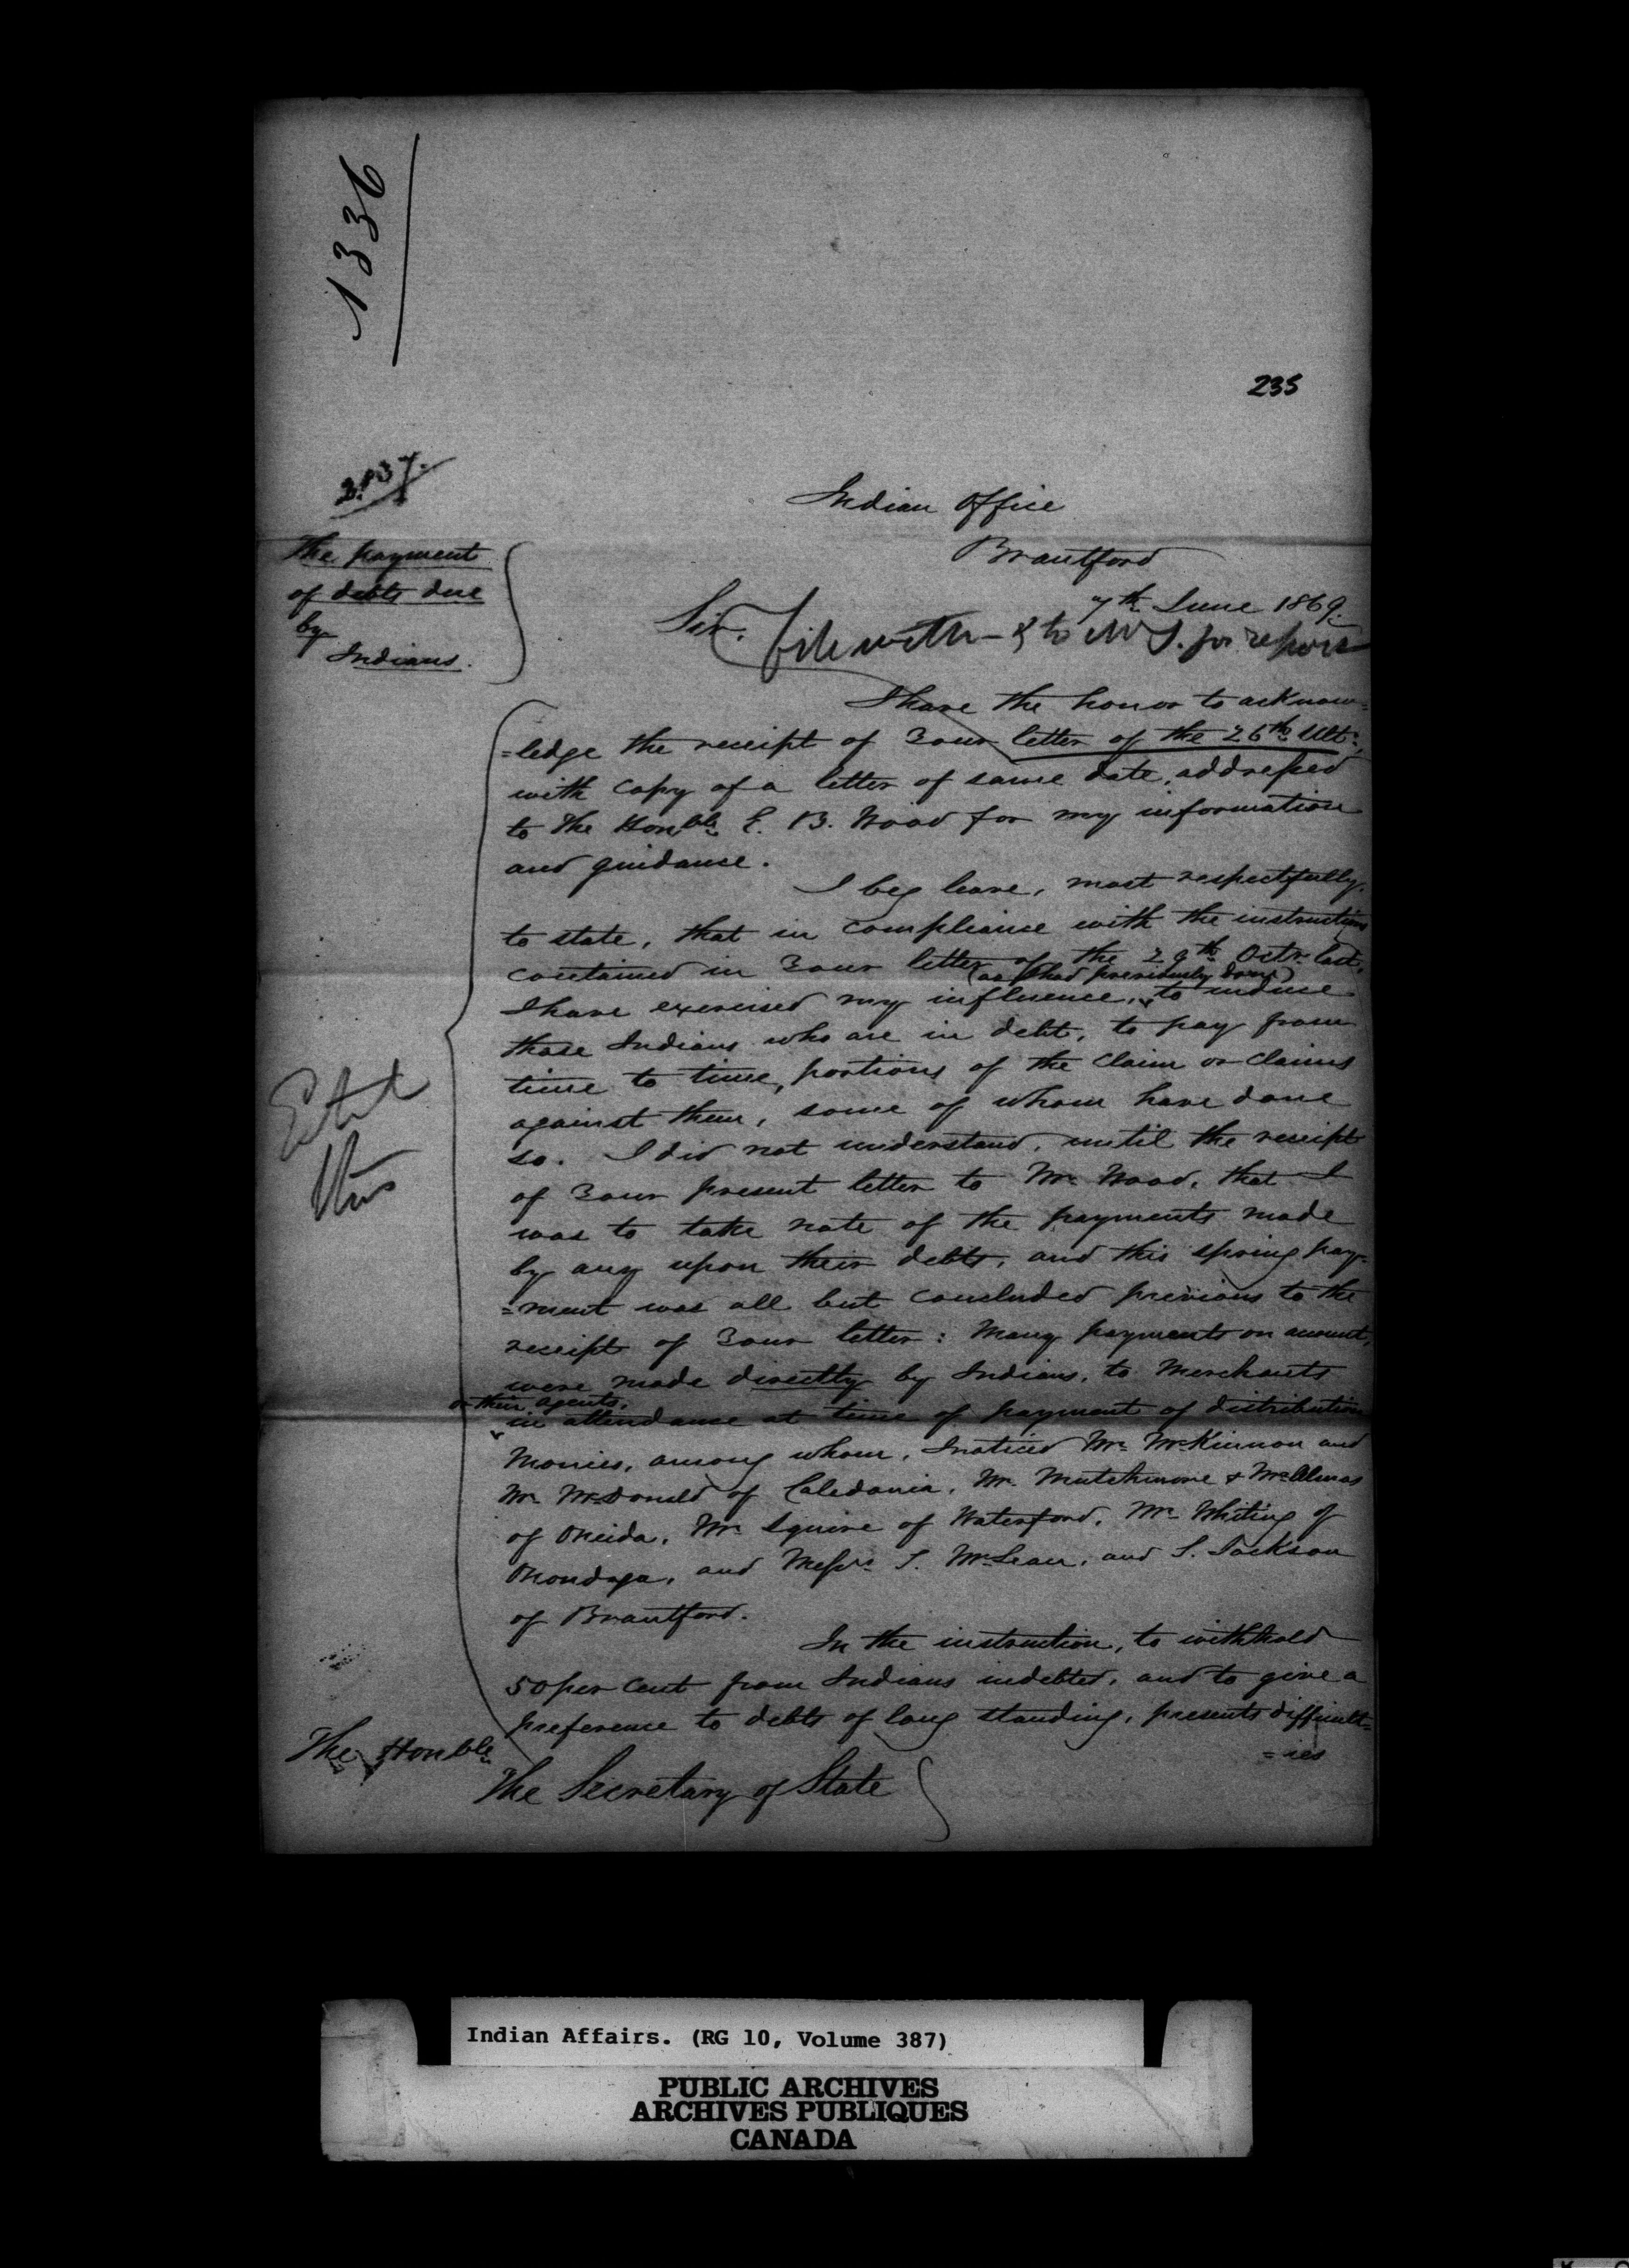 1336
235
Indian Office
Brantford
7th June 1869.
The payment
of debts due
by
Indians.
Sir.
File with - & to Mr S. for report
I have the honor to acknow=
=ledge the receipt of Your letter of the 26th Ulto.,
with copy of a letter of same date, addressed
to The Honble E. B. Wood for my information
and guidance.
I beg leave, most respectfully,
to state, that in compliance with the instructions
contained in Your letter of the 29th Octr. last,
(as I had previously done)
I have exercised my influence, to induce
those Indians who are in debt, to pay from
time to time, portions of the claim or claims
against them, some of whom have done
so. I did not understand, until the receipt
of Your present letter to Mr. Wood, that I
was to take note of the payments made
by any upon their debts, and this spring pay-
=ment was all but concluded previous to the
receipt of Your letter: Many payments on account,
were made directly by Indians, to Merchants
or their agents,
in attendance at time of payment of distribution
Monies, among whom, I noticed Mr. McKinnon and
Mr. McDonald of Caledonia, Mr. Mutchmore & Mr.
of Oneida, Mr. Squire of Waterford, Mr. Whiting of
Onondaga, and Messrs. T. McLean, and S. Jackson
of Brantford.
In the instruction, to withhold
50 per cent from Indians indebted, and to give a
preference to debts of long standing, presents difficult=
=ies
The Honble
The Secretary of State
this
Indian Affairs. (RG 10, Volume 387)
PUBLIC ARCHIVES
ARCHIVES PUBLIQUES
CANADA